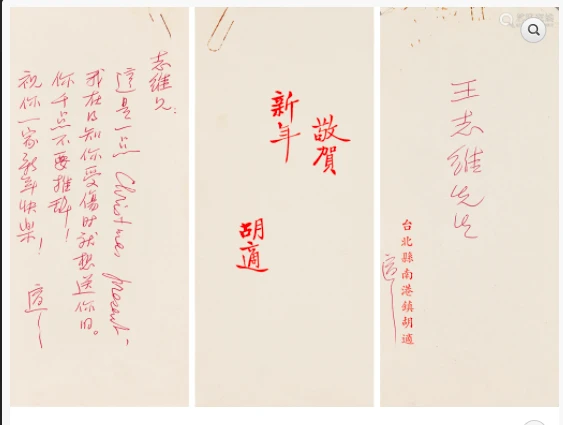 志維兄:
這是一点 Christmas present,
我在 知你受傷時就想送你的。
你千 不要推辞!
祝你一家新年快樂!
適
敬賀
新年
胡適
王志維先生
台北縣南港鎮胡適
適